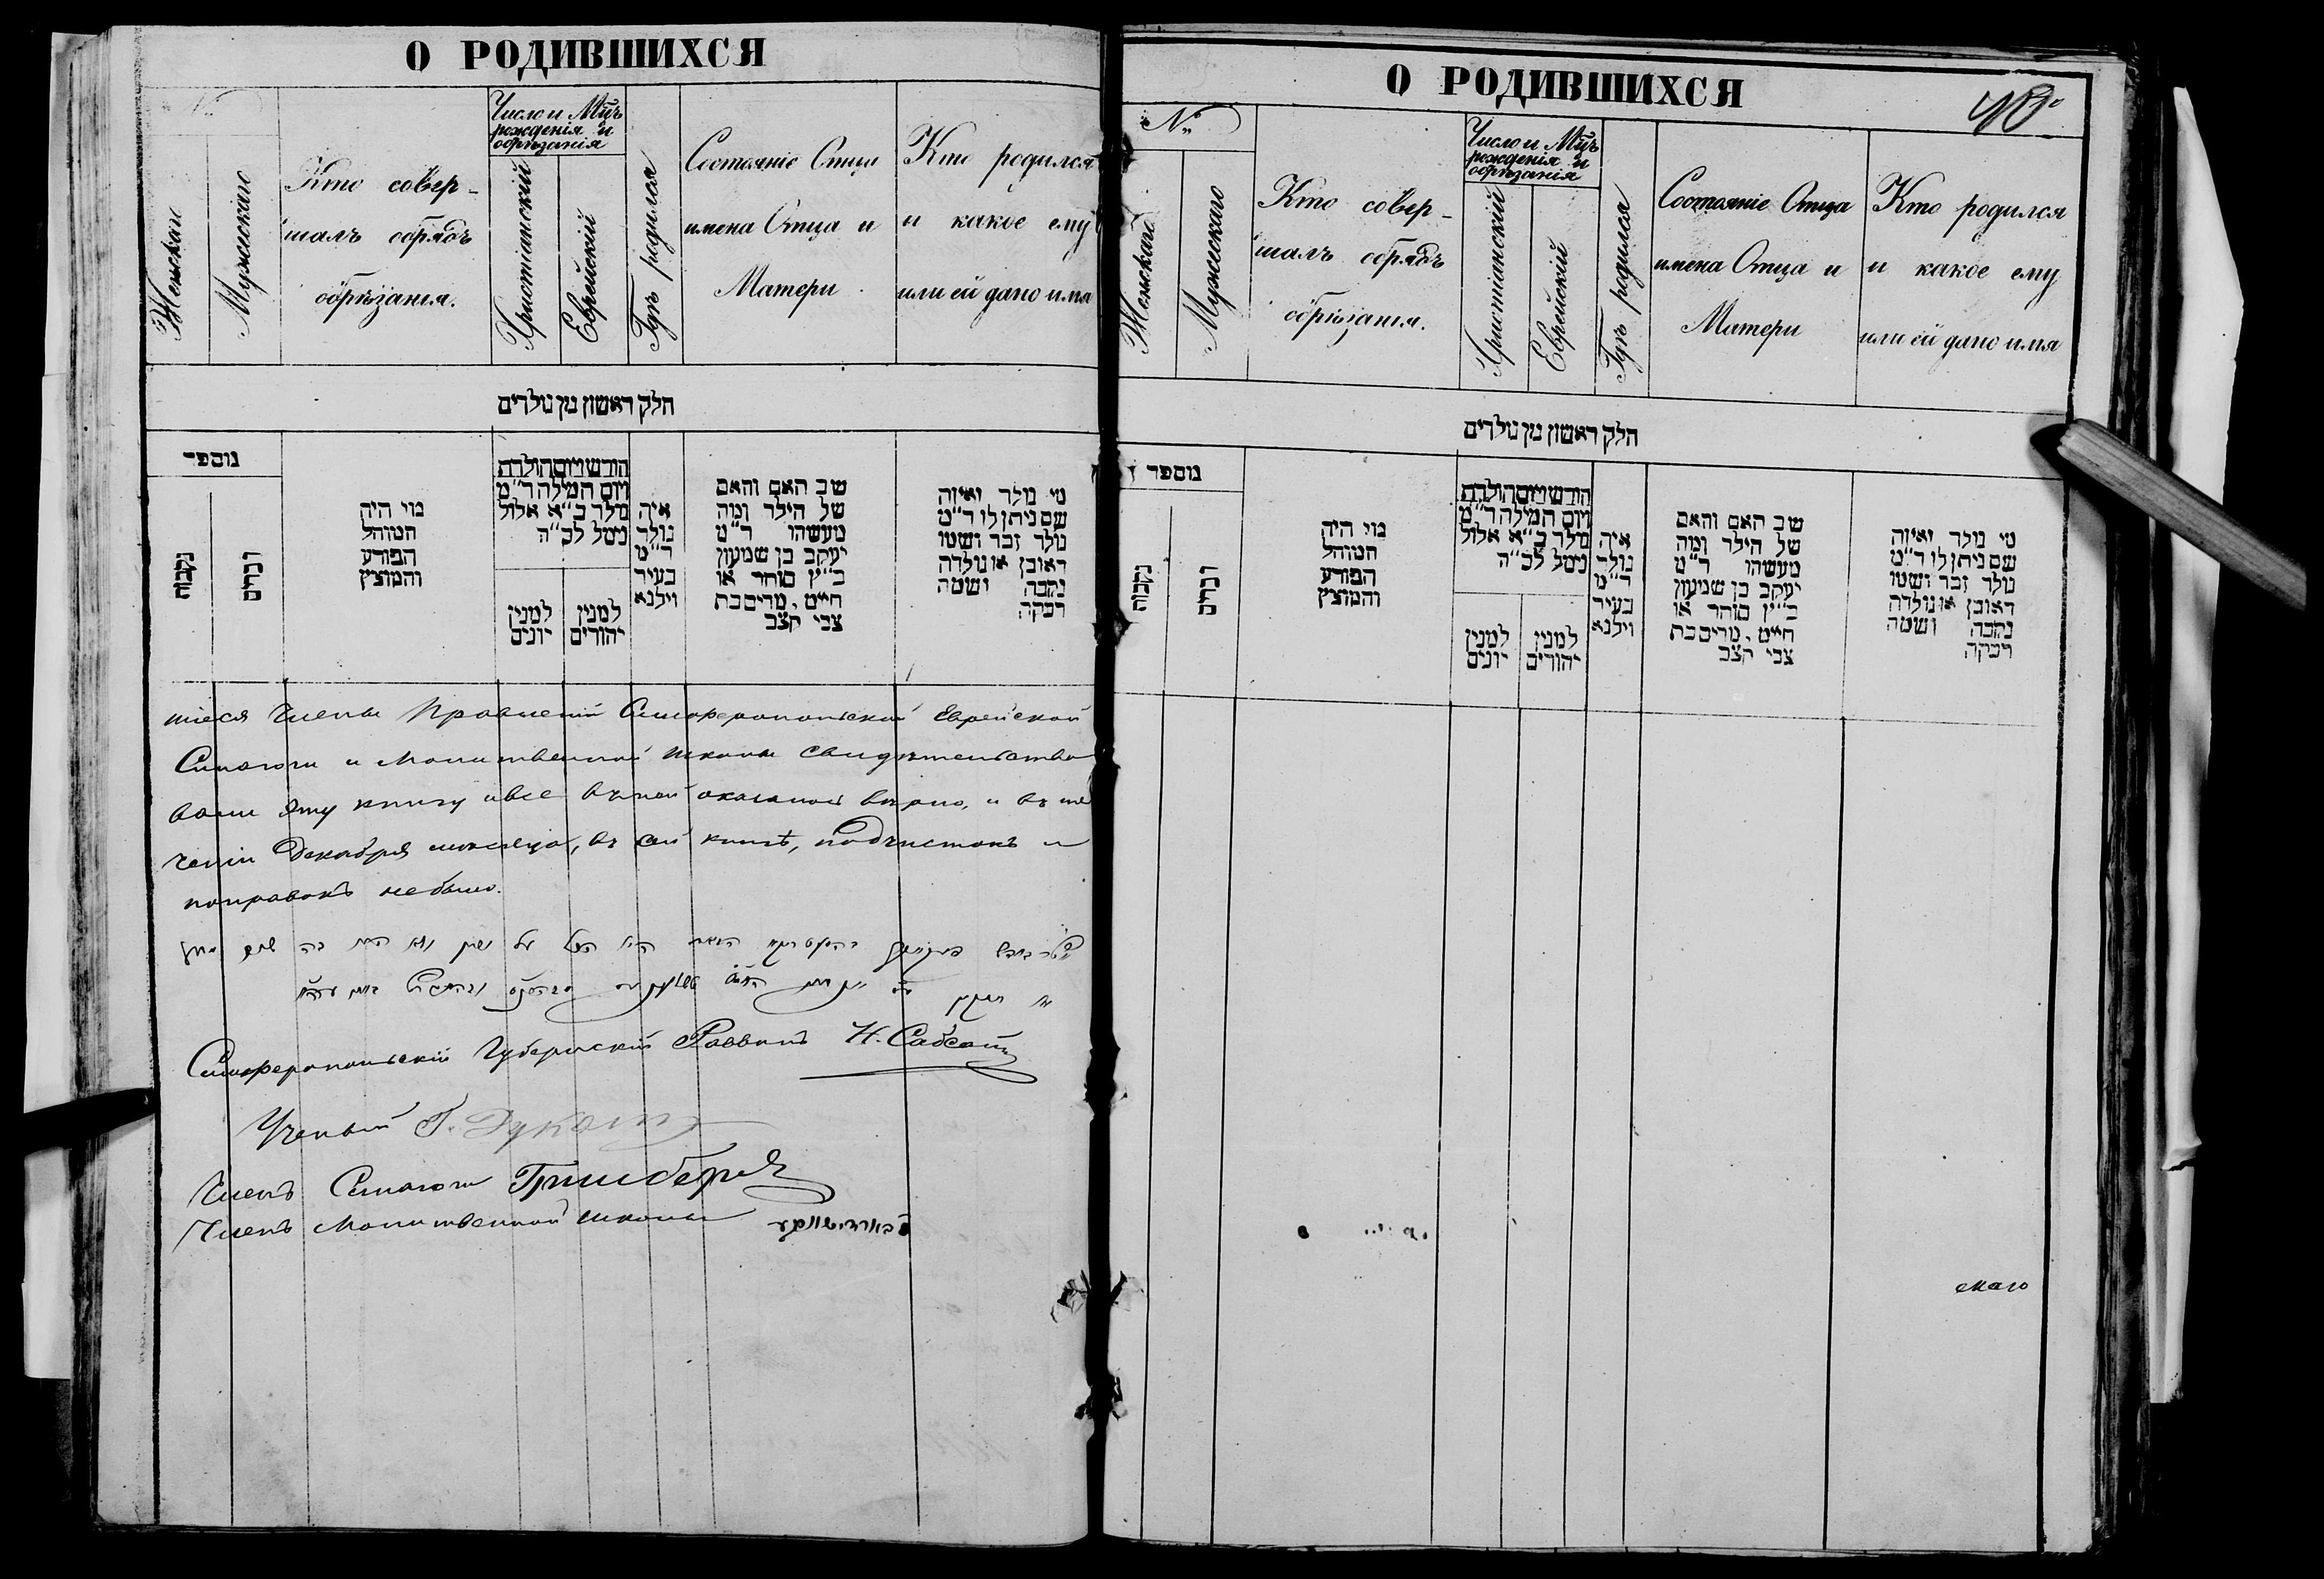 О РОДИВШИХСЯ
№
Женскаго
Мужескаго
Кто совер-
шалъ обрядъ
обрѣзанія.
Число и Мцъ
рожденія и
обрѣзанія
Христіанскій
Еврейскій
Гдѣ родился
Состояніе Отца
имена Отца и
Матери
Кто родился
и какое ему
или ей дано имя
חלק ראשון מן נולדים
מספר
נקבות
זכרים
מי היה
המוהל
הפורע
והמוצץ
חודש ויום הולדת
ויום המילה ד״מ
נולד כ״א אלול
נימל לכ״ה
למנין
יונים
למנין
יהודים
איה
נולד
ד״מ
בעיר
וילנא
שב האם והאם
של הילד ומה
מעשהו ד״מ
יעקב בן שמעון
כ״ץ סוחר או
חייט, מרים בת
צבי קצב
מי נולד ואיזה
שם ניתן לו ד״מ
נולד זכר ושמו
ראובן או נולדה
נקבה ושמה
רבקה
шіеся Члены Правленій Симферопольской Еврейской
Синагоги и Молитвенной школы свидѣтельство
вали эту книгу и все въ ней оказалось вѣрно, и въ те
ченіи Декабря мѣсяца, въ сей книгѣ, подчистокъ и
поправокъ не было.
Симферопольскій Губернскій Раввинъ Н. Сабсай
Ученый Г.
Членъ Синагоги Гринбергъ
Членъ Молитвенной школы
О РОДИВШИХСЯ
№
Женскаго
Мужескаго
Кто совер-
шалъ обрядъ
обрѣзанія.
Число и Мцъ
рожденія и
обрѣзанія
Христіанскій
Еврейскій
Гдѣ родился
Состояніе Отца
имена Отца и
Матери
Кто родился
и какое ему
или ей дано имя
חלק ראשון מן נולדים
מספר
נקבות
זכרים
מי היה
המוהל
הפורע
והמוצץ
חודש ויום הולדת
ויום המילה ד״מ
נולד כ״א אלול
נימל לכ״ה
למנין
יונים
למנין
יהודים
איה
נולד
ד״מ
בעיר
וילנא
שב האם והאם
של הילד ומה
מעשהו ד״מ
יעקב בן שמעון
כ״ץ סוחר או
חייט, מרים בת
צבי קצב
מי נולד ואיזה
שם ניתן לו ד״מ
נולד זכר ושמו
ראובן או נולדה
נקבה ושמה
רבקה
скаго